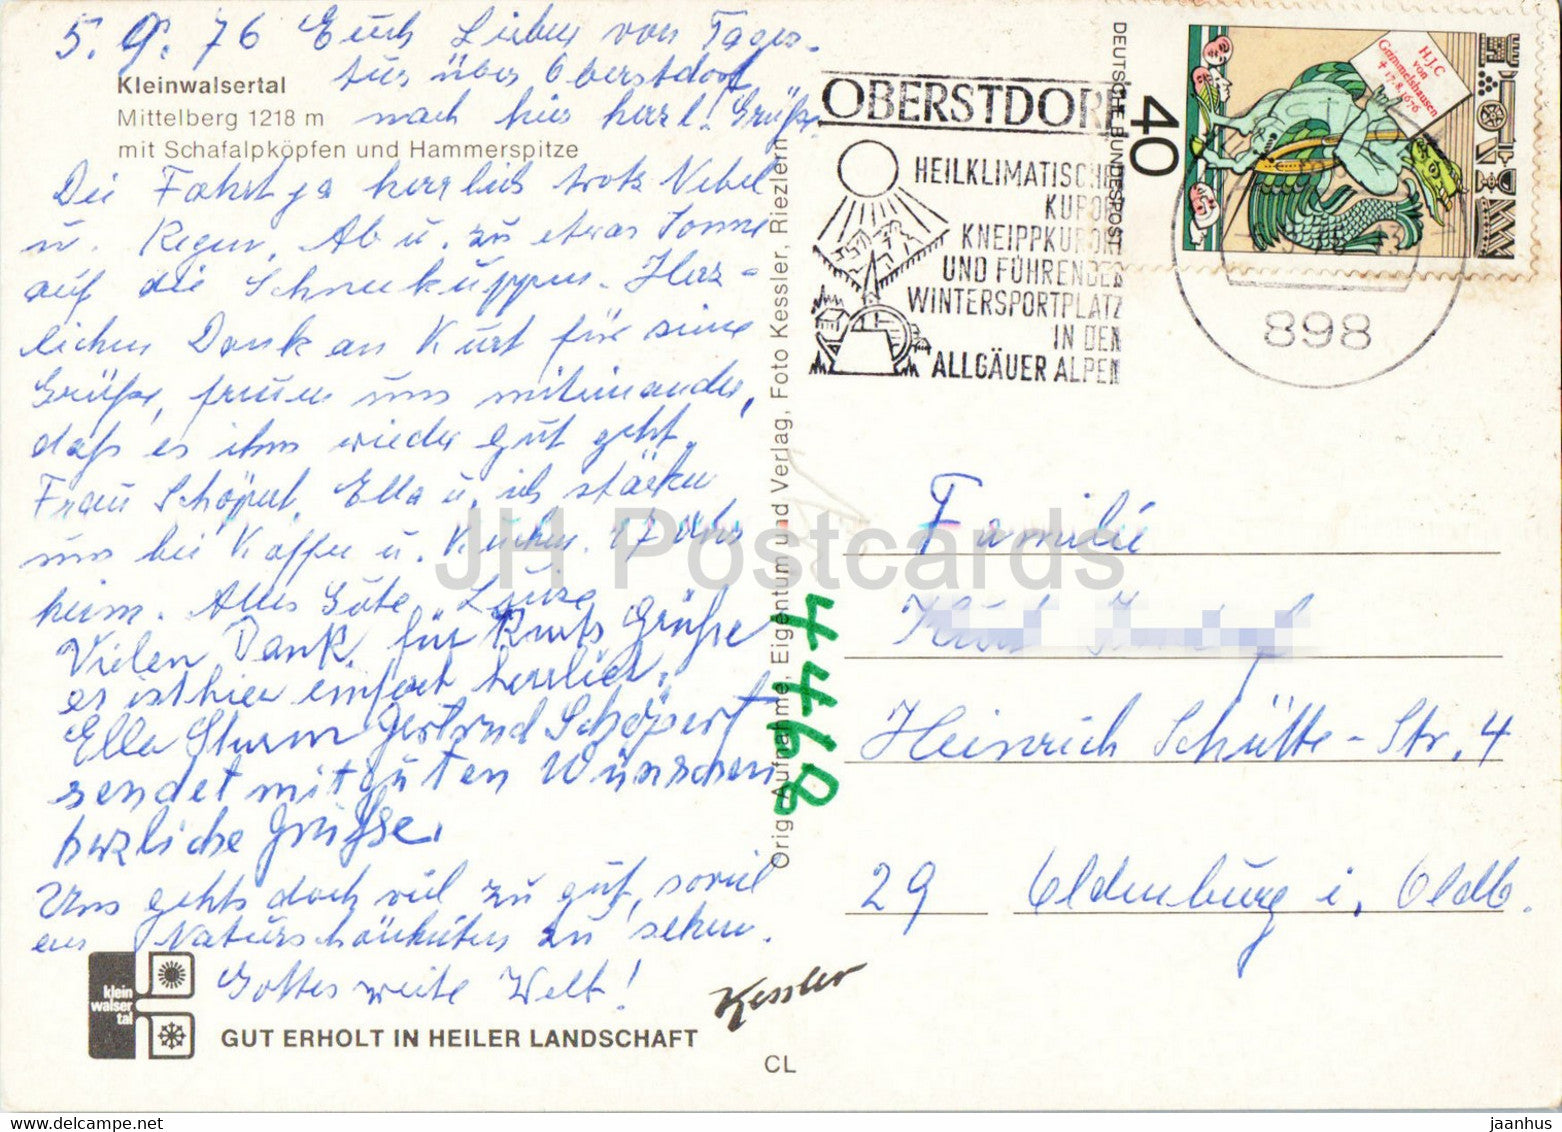 5. 9. 76 Euch Lieben von Tages-
tur über Oberstdorf
nach hier herzl. Grüße.
Kleinwalsertal
Mittelberg 1218 m
mit Schafalpköpfen und Hammerspitze
Die Fahrt ja herrlich trotz Nebel
u. Regen. Ab u. zu etwas Sonne
auf die Schneekuppen. Herz-
lichen Dank an Kurt für seine
Grüße, freuen uns miteinander,
daß es ihm wieder gut geht.
Frau Schöpert, Ella u. ich stärken
uns bei Kaffee u. Kuchen. 17 Uhr
heim. Alles Gute Luise
Vielen Dank für Kurts Grüße
es ist hier einfach herrlich.
Ella Sturm Gertrud Schöpert
sendet mit guten Wünschen
herzliche Grüße.
Uns gehts doch viel zu gut, soviel
an Naturschönheiten zu sehen.
Gottes weite Welt!
klein
walser
tal
GUT ERHOLT IN HEILER LANDSCHAFT
Kessler
CL
Orig. Aufnahme, Eigentum und Verlag, Foto Kessler, Riezlern
4498
OBERSTDORF
HEILKLIMATISCHER
KURORT
KNEIPPKURORT
UND FÜHRENDER
WINTERSPORTPLATZ
IN DEN
ALLGÄUER ALPEN
DEUTSCHE BUNDESPOST
40
H.J.C
von
Grimmelshausen
† 17.8.1676
898
Familie
Heinrich Schütte-Str. 4
29 Oldenburg i. Oldb.
JH Postcards
jaanhus